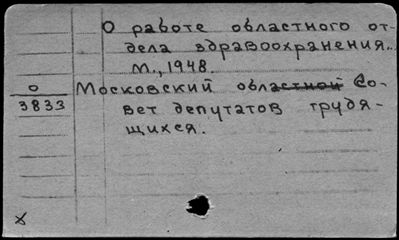 О работе областного от-
дела здравоохранения..
М., 1948.
О
3833
Московский областной Со-
вет депутатов трудя-
щихся.